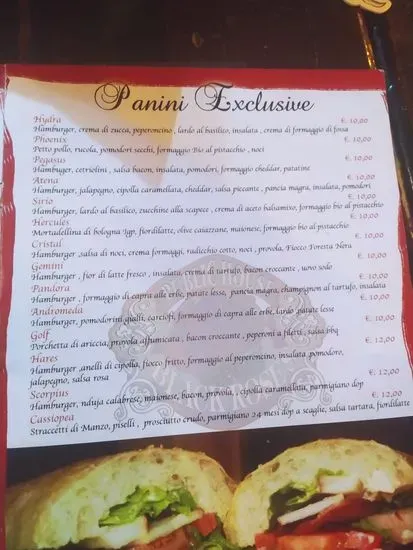 Panini Exclusive
Hydra €. 10,00
Hamburger, crema di zucca, peperoncino, lardo al basilico, insalata, crema di formaggio di fossa
Phoenix €. 10,00
Petto pollo, rucola, pomodori secchi, formaggio Bio al pistacchio, noci
Pegasus €. 10,00
Hambuger, cetriolini, salsa bacon, insalata, pomodori, formaggio cheddar, patatine
Atena €. 10,00
Hamburger, jalapegno, cipolla caramellata, cheddar, salsa piccante, pancia magra, insalata, pomodori
Sirio €. 10,00
Hamburger, lardo al basilico, zucchine alla scapece, crema di aceto balsamixo, formaggio bio al pistacchio
Hercules €. 10,00
Mortadellina di bologna Igp, fiordilatte, olive caiazzane, maionese, formaggio bio al pistacchio
Cristal €. 10,00
Hamburger, salsa di noci, crema formaggi, radicchio cotto, noci, provola, Fiocco Foresta Nera
Gemini €. 10,00
Hamburger, fior di latte fresco, insalata, crema di tartufo, bacon croccante, uovo sodo
Pandora €. 10,00
Hamburger, formaggio di capra alle erbe, patate lesse, pancia magra, champignon al tartufo, insalata
Andromeda €. 10,00
Hamburger, pomodorini gialli, carciofi, formaggio di capra alle erbe, lardo, patate lesse
Golf €. 12,00
Porchetta di ariccia, provola affumicata, bacon croccante, peperoni a filetti, salsa bbq
Hares €. 12,00
Hamburger, anelli di cipolla, fiocco fritto, formaggio al peperoncino, insalata, pomodoro,
jalapegno, salsa rosa
Scorpius €. 12,00
Hamburger, nduja calabrese, maionese, bacon, provola, cipolla caramellata, parmigiano dop
Cassiopea €. 12,00
Straccetti di Manzo, piselli, prosciutto crudo, parmigiano 24 mesi dop a scaglie, salsa tartara, fiordilatte